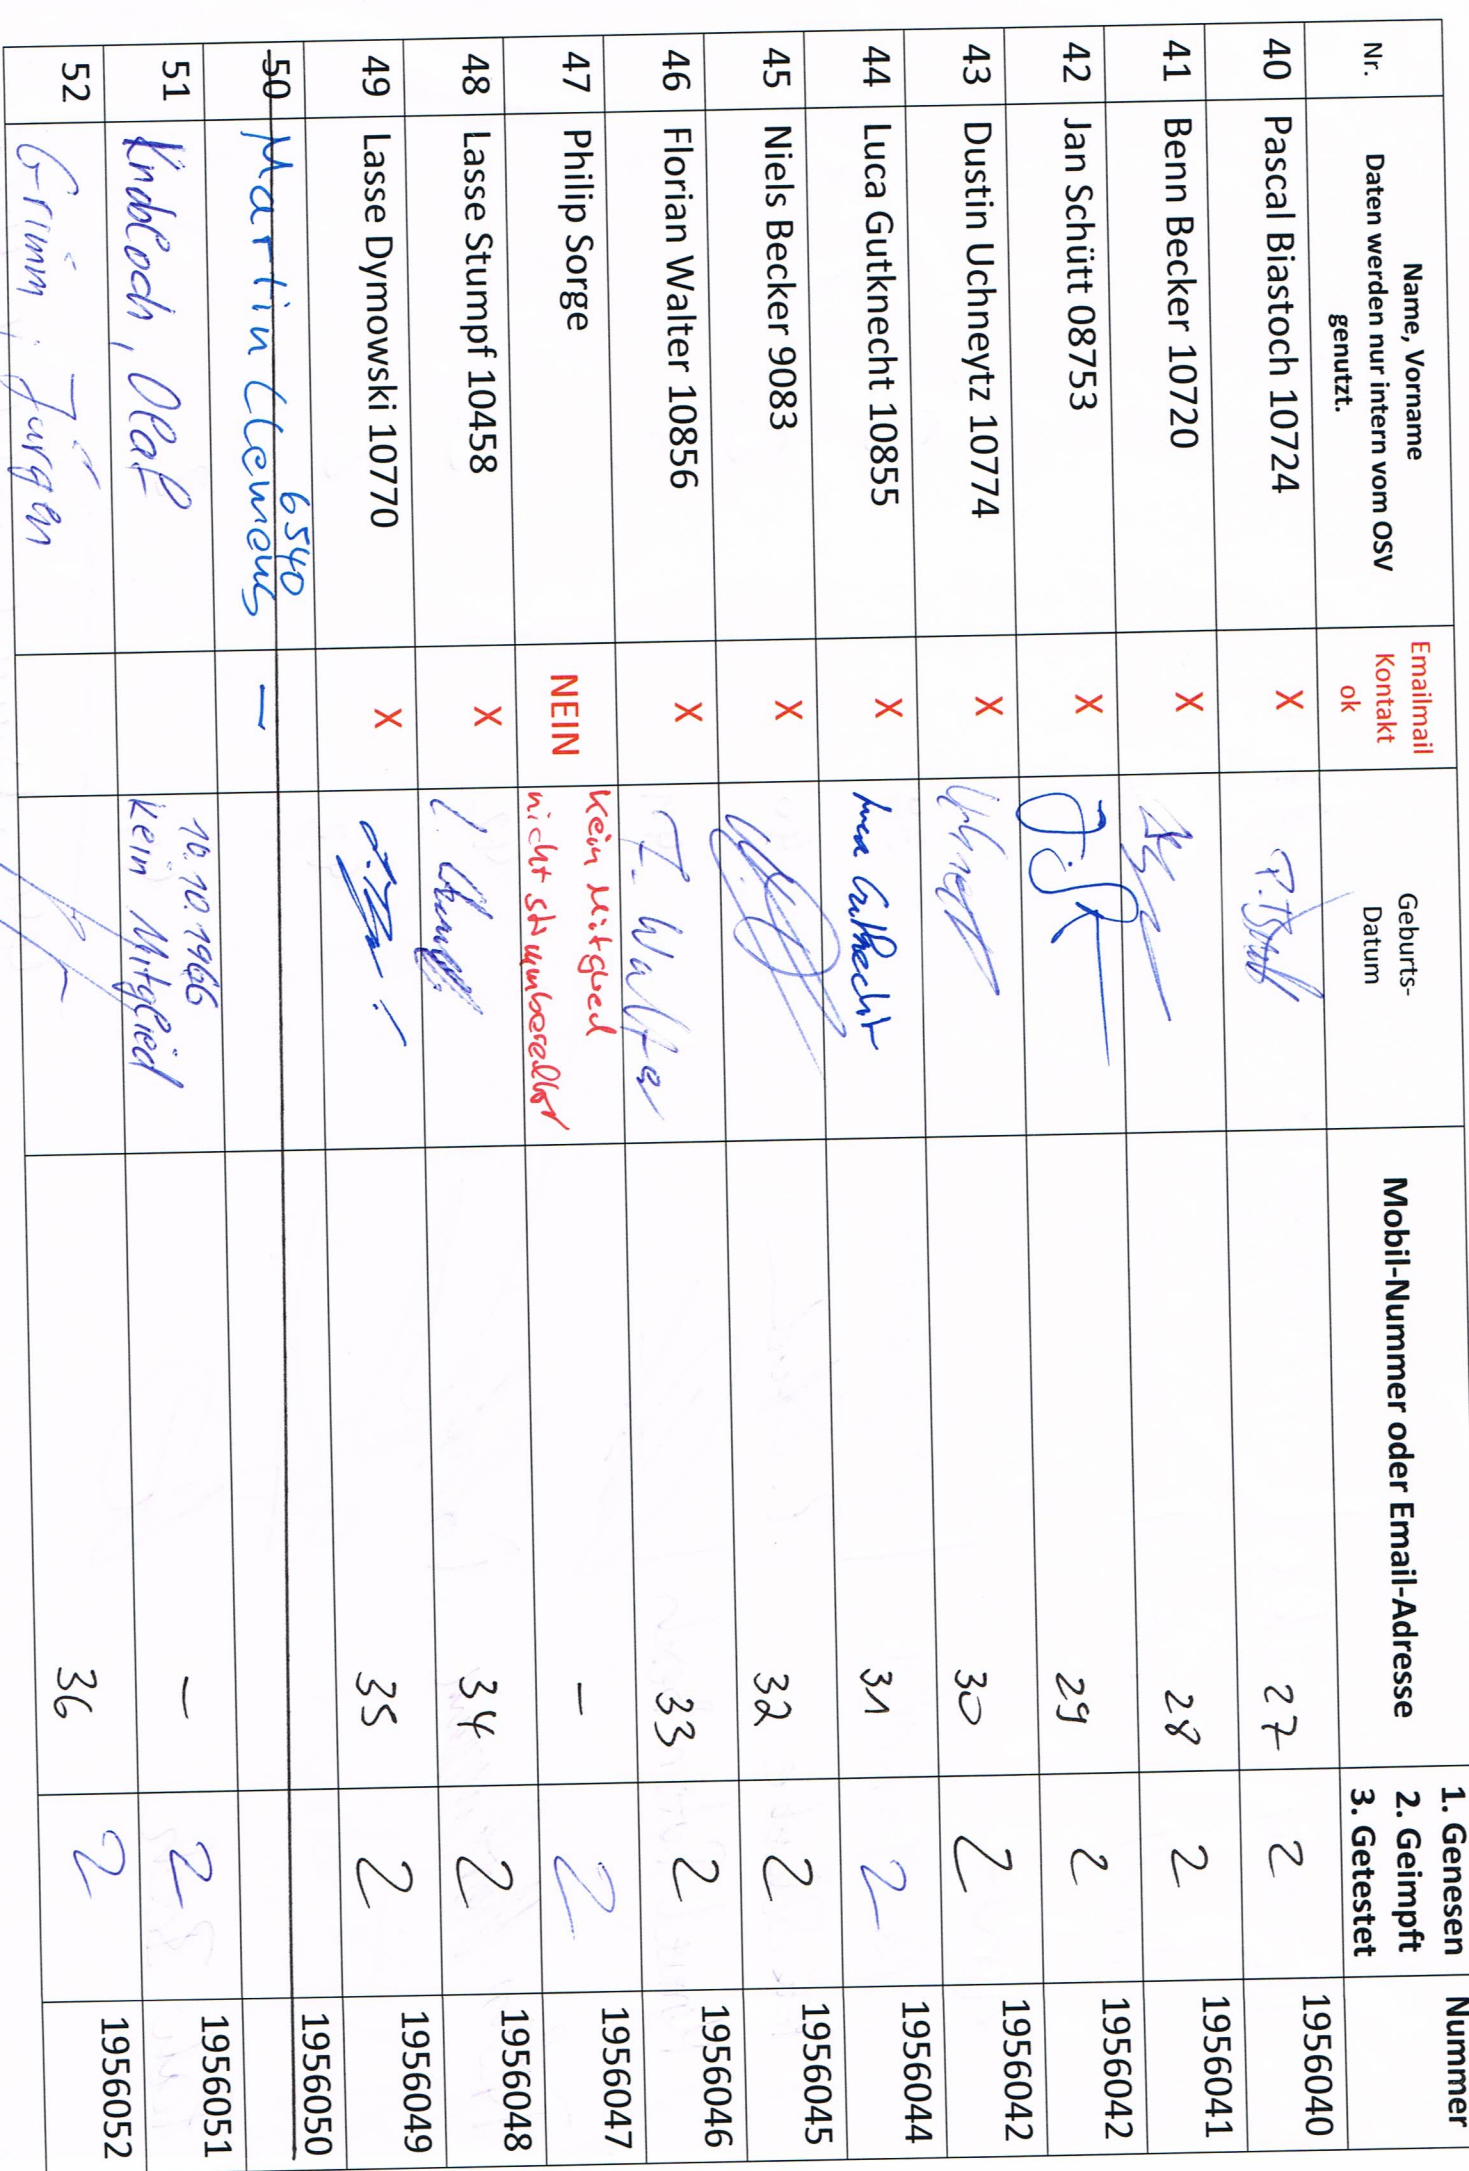 Nr.
Name, Vorname
Daten werden nur intern vom OSV
genutzt.
Emailmail
Kontakt
ok
Geburts-
Datum
Mobil-Nummer oder Email-Adresse
1. Genesen
2. Geimpft
3. Getestet
Nummer
40 Pascal Biastoch 10724 X 27 2 1956040
41 Benn Becker 10720 X 28 2 1956041
42 Jan Schütt 08753 X 29 2 1956042
43 Dustin Uchneytz 10774 X 30 2 1956042
44 Luca Gutknecht 10855 X Luca Gutknecht 31 2 1956044
45 Niels Becker 9083 X 32 2 1956045
46 Florian Walter 10856 X F. Walter 33 2 1956046
47 Philip Sorge NEIN Kein Mitglied - 2 1956047
nicht stimmberechtigt
48 Lasse Stumpf 10458 X 34 2 1956048
49 Lasse Dymowski 10770 X 35 2 1956049
6540
50 Martin Clemens - 1956050
51 Knobloch, Olaf 10.10.1966 - 2 1956051
kein Mitglied
52 Grimm, Jürgen 36 2 1956052